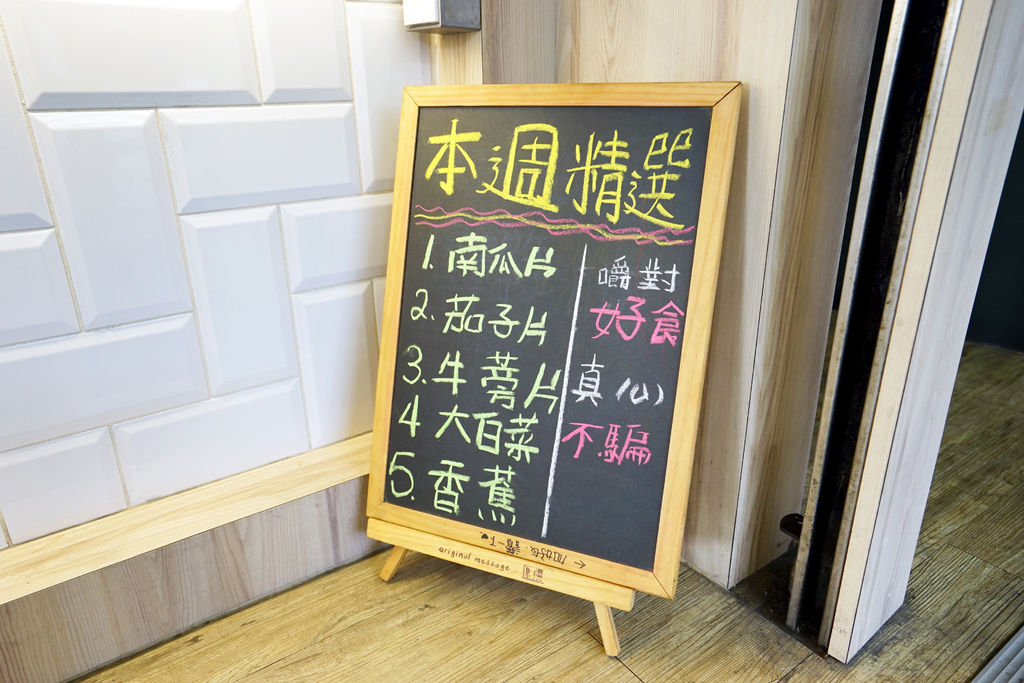 本週精選
1. 南瓜片
2. 茄子片
3. 牛蒡片
4 大白菜
5. 香蕉
嚼對
好食
真心
不騙
original message